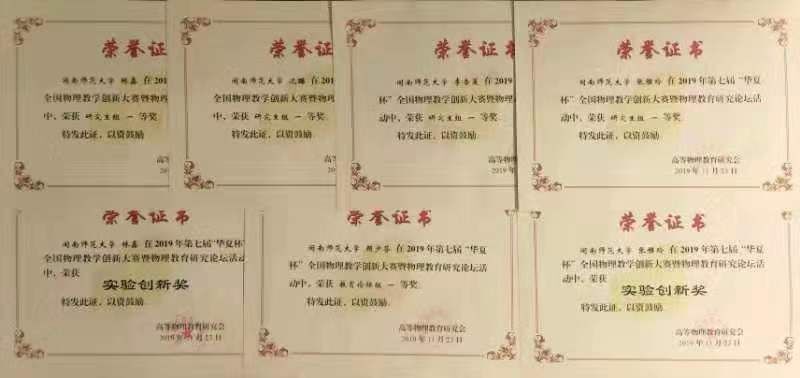 荣誉证书
闽南师范大学 林嘉 在2019
全国物理教学创新大赛暨物理
中，荣获 研究生组 一 等奖
特发此证，以资鼓励
高等物理
2019
荣誉证书
闽南师范大学 在2019
全国物理教学创新大赛暨物理
中，荣获 研究生组 一 等奖
特发此证，以资鼓励
高等物理
2019
荣誉证书
闽南师范大学 在2019年
杯”全国物理教学创新大赛暨物理
动中，荣获 研究生组 一 等奖
特发此证，以资鼓励
高等物理教
2019年11
荣誉证书
闽南师范大学 张雅玲 在2019年第七届“华夏
杯”全国物理教学创新大赛暨物理教育研究论坛活
动中，荣获 研究生组 一 等奖
特发此证，以资鼓励
高等物理教育研究会
2019年11月23日
荣誉证书
闽南师范大学 林嘉 在2019年第七届“华夏杯”
全国物理教学创新大赛暨物理教育研究论坛活动
中，荣获
实验创新奖
特发此证，以资鼓励
高等物理教育研究会
2019年11月23日
荣誉证书
闽南师范大学 颜少芬 在2019年第七届“华夏
杯”全国物理教学创新大赛暨物理教育研究论坛活
动中，荣获 教育论坛组 一 等奖
特发此证，以资鼓励
高等物理教育研究会
2019年11月23日
荣誉证书
闽南师范大学 张雅玲 在2019年第七届“华夏
杯”全国物理教学创新大赛暨物理教育研究论坛活
动中，荣获
实验创新奖
特发此证，以资鼓励
高等物理教育研究会
2019年11月23日